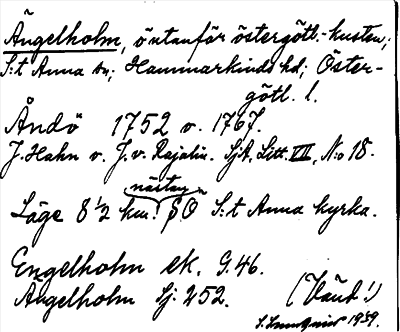 Ängelholm, ö utanför östergötl.-kusten;
S:t Anna sn; Hammarkinds hd; Öster-
götl. l.
Ändö 1752 o. 1767.
J. Hahn o. J. v. Rajalin. SjA, Litt. VIII, N:o 18.
nästan
Läge 8 ½ km. SO S:t Anna kyrka.
Engelholm ek. G. 46.
Ängelholm Sj: 252. (Vänd!)
1939.